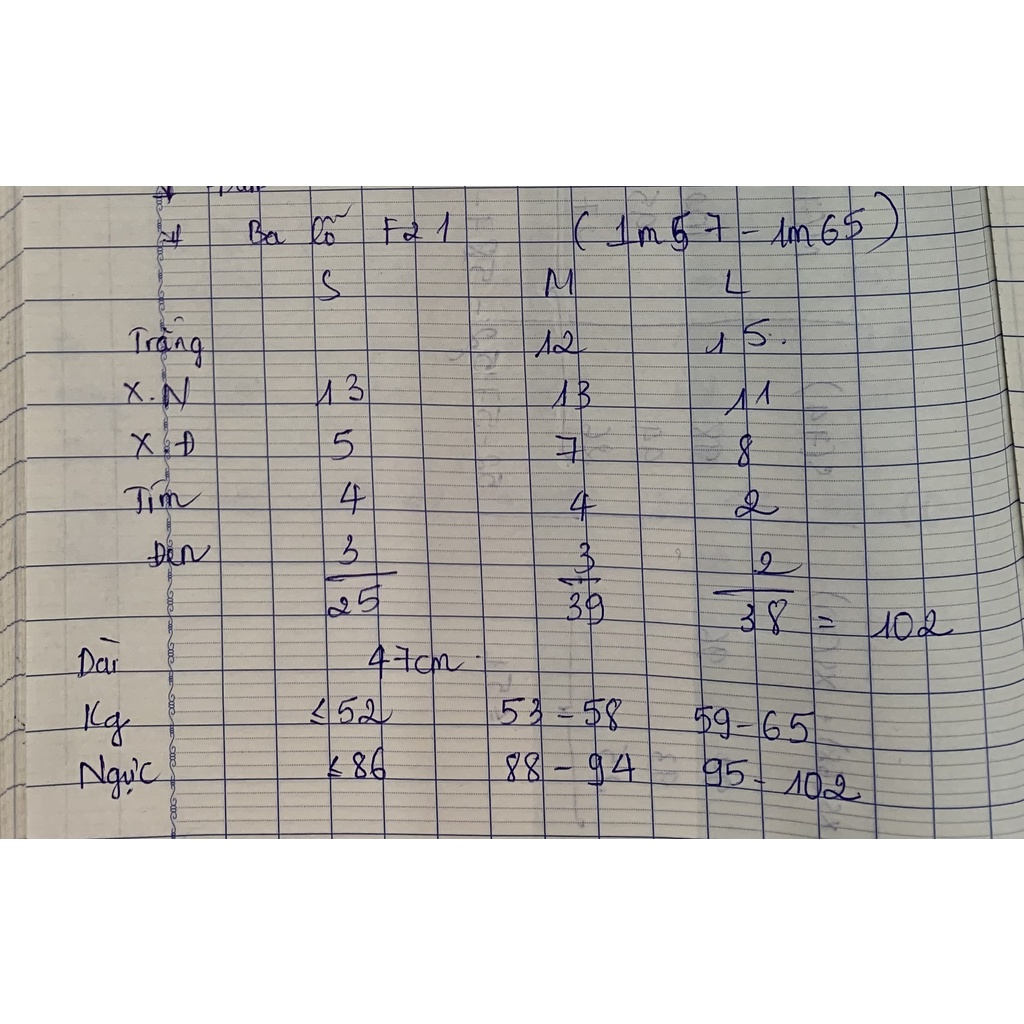 Ba lỗ F21 (1m57 - 1m65)
S M L
Trắng 12 15.
X.N 13 13 11
X Đ 5 7 8
Tím 4 4 2
Đen 3 3 2
25 39 38 = 102
Dài 47cm
Kg ≤52 53-58 59-65
Ngực ≤86 88-94 95-102